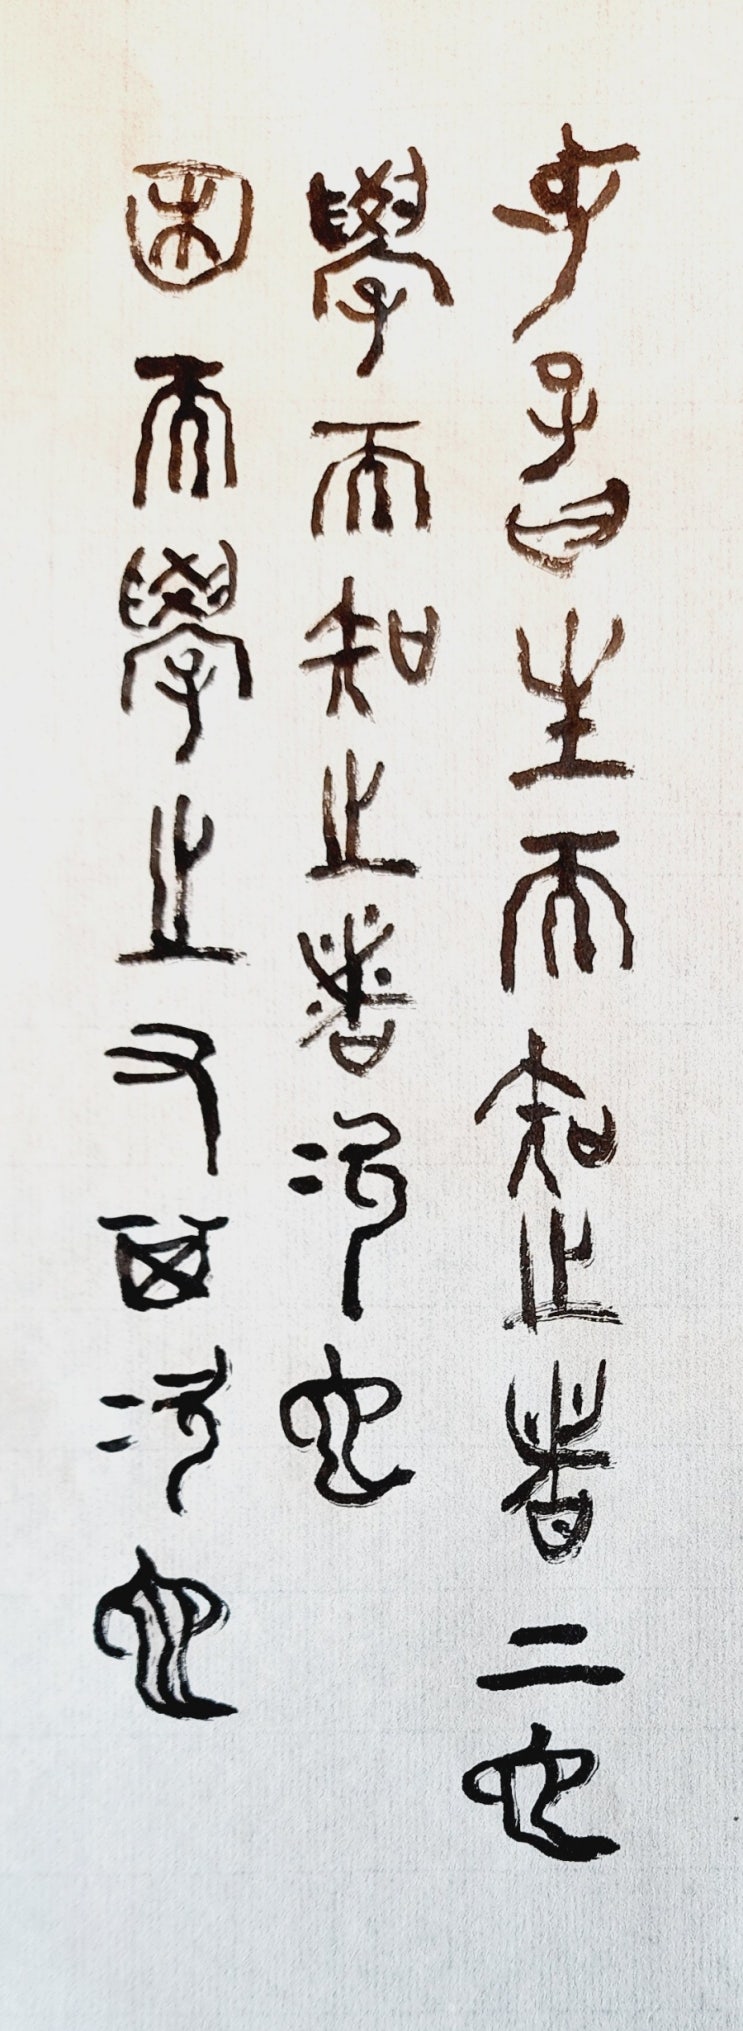 孔子曰生而知之者上也
學而知之者次也
困而學之又其次也